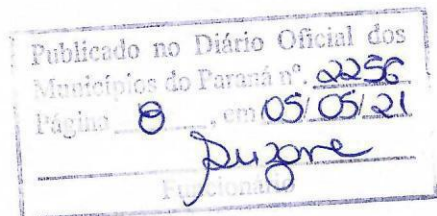 Publicado no Diário Oficial dos
Municípios do Paraná nº. 2256
Página 8, em 05/05/21
Suzane
Funcionário